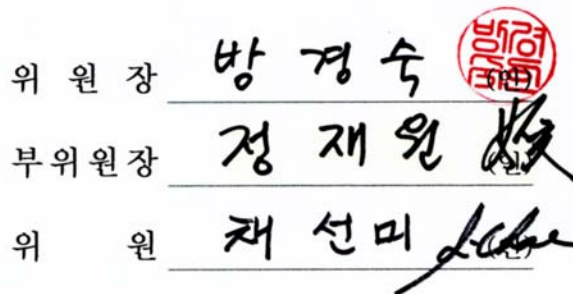 위 원 장 방 경 숙 (인)
부위원장 정 재 원 (인)
위 원 채 선 미 (인)